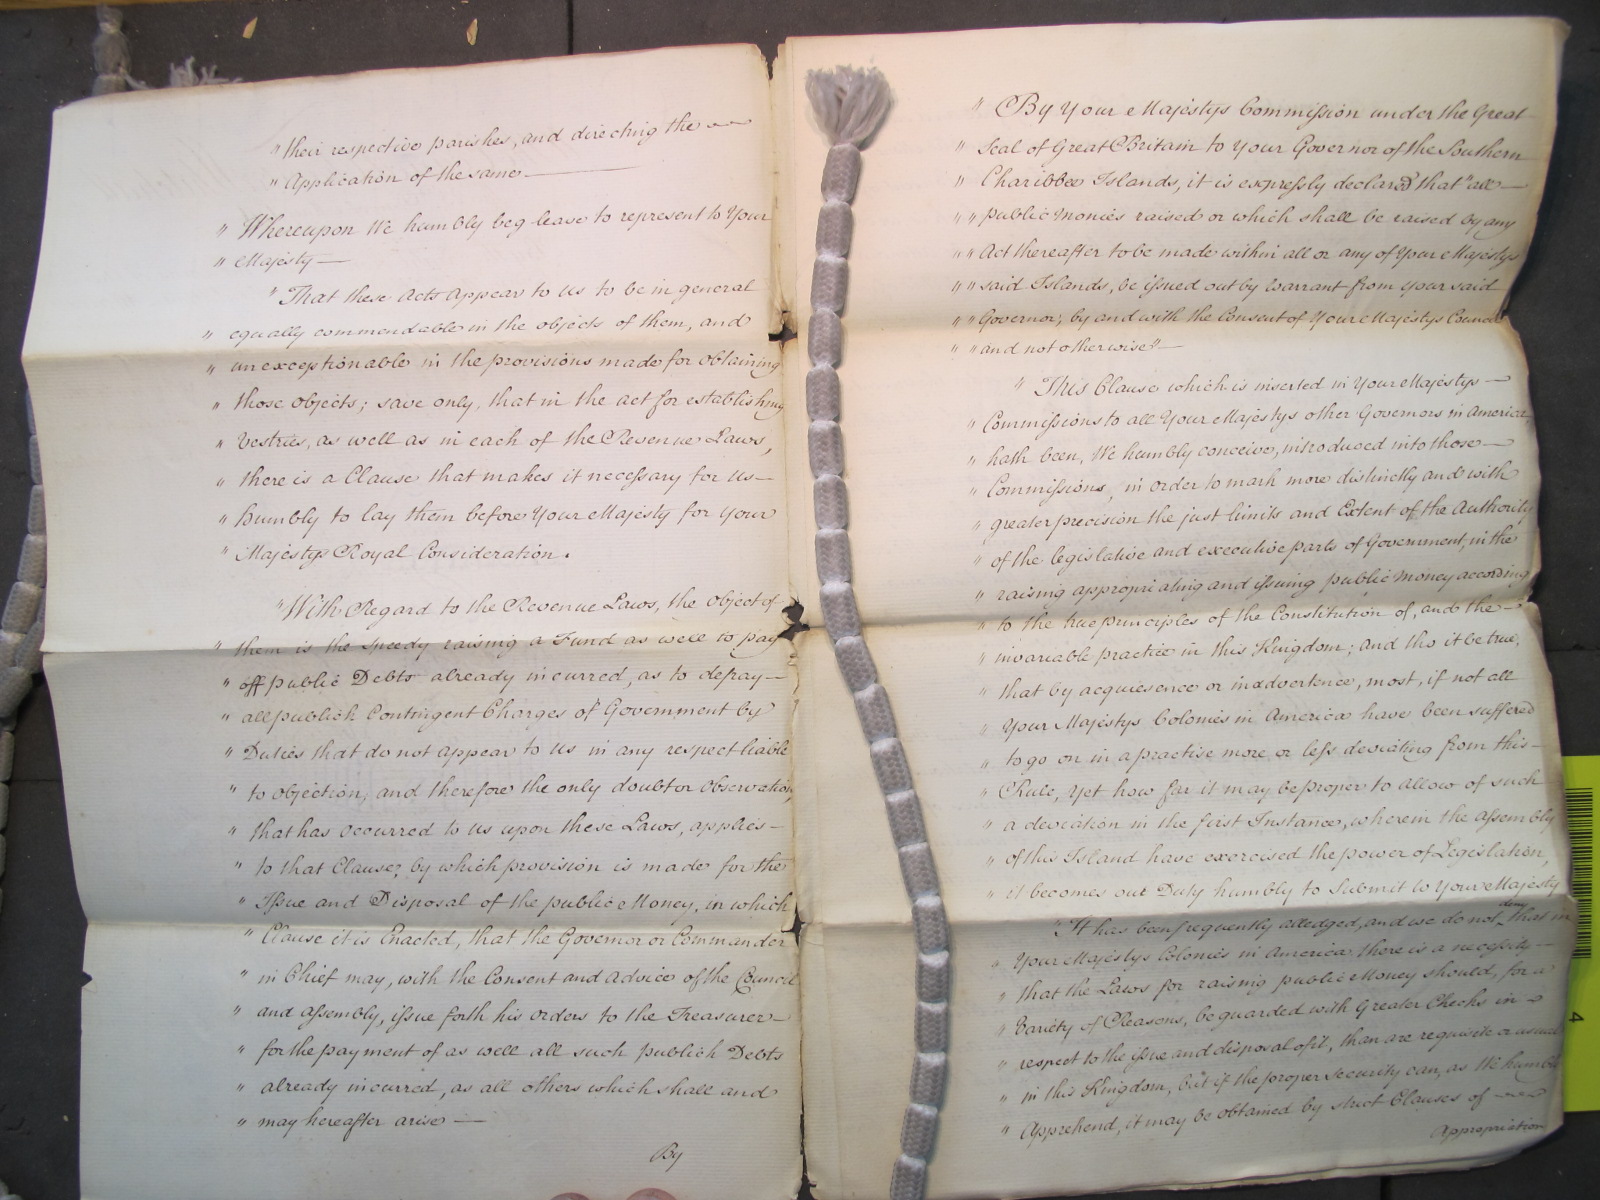 " their respective parishes, and directing the
" Application of the same
" Whereupon We humbly beg leave to represent to Your
" Majesty
" That these Acts appear to us to be in general
" equally commendable in the objects of them, and
" unexceptionable in the provisions made for obtaining
" those objects; save only, that in the act for establishing
" Vestries, as well as in each of the Revenue Laws,
" there is a Clause that makes it necessary for us
" humbly to lay them before Your Majesty for Your
" Majestys Royal Consideration.
" With Regard to the Revenue Laws, the object of
" them is the speedy raising a Fund as well to pay
" off public Debts already incurred, as to defray
" all publick Contingent Charges of Government by
" Duties that do not appear to us in any respect liable
" to objection, and therefore the only doubt or Observation,
" that has occurred to us upon these Laws, applies
" to that Clause; by which provision is made for the
" Issue and Disposal of the public Money, in which
" Clause it is Enacted, that the Governor or Commander
" in Chief may, with the Consent and Advice of the Council
" and Assembly, issue forth his orders to the Treasurer
" for the payment of as well all such publick Debts
" already incurred, as all others which shall and
" may hereafter arise —
By
" By Your Majestys Commission under the Great
" Seal of Great Britain to Your Governor of the Southern
" Charibbee Islands, it is expressly declared that "all
" " public Monies raised or which shall be raised by any
" " Act thereafter to be made within all or any of Your Majestys
" " said Islands, be issued out by Warrant from your said
" " Governor; by and with the Consent of Your Majestys Council
" " and not otherwise" —
" This Clause which is inserted in Your Majestys
" Commissions to all Your Majestys other Governors in America,
" hath been, We humbly conceive, introduced into those
" Commissions, in order to mark more distinctly and with
" greater precision the just limits and Extent of the Authority
" of the legislative and executive parts of Government, in the
" raising appropriating and issuing public Money according
" to the true principles of the Constitution of, and the
" invariable practice in this Kingdom; and tho it be true,
" that by acquiesence or inadvertence, most, if not all
" Your Majestys Colonies in America have been suffered
" to go on in a practise more or less deviating from this
" Rule, yet how far it may be proper to allow of such
" a deviation in the first Instance, wherein the Assembly
" of this Island have exercised the power of Legislation,
" it becomes our Duty humbly to Submit to Your Majesty
deny
" It has been frequently alledged, and we do not ‸ that in
" Your Majestys Colonies in America there is a necessity
" that the Laws for raising public Money should, for a
" Variety of Reasons, be guarded with Greater Checks in
" respect to the issue and disposal of it, than are requisite or usual
" in this Kingdom, but if the proper Security can, as We humbly
" Apprehend, it may be obtained by strict Clauses of
Appropriation
4